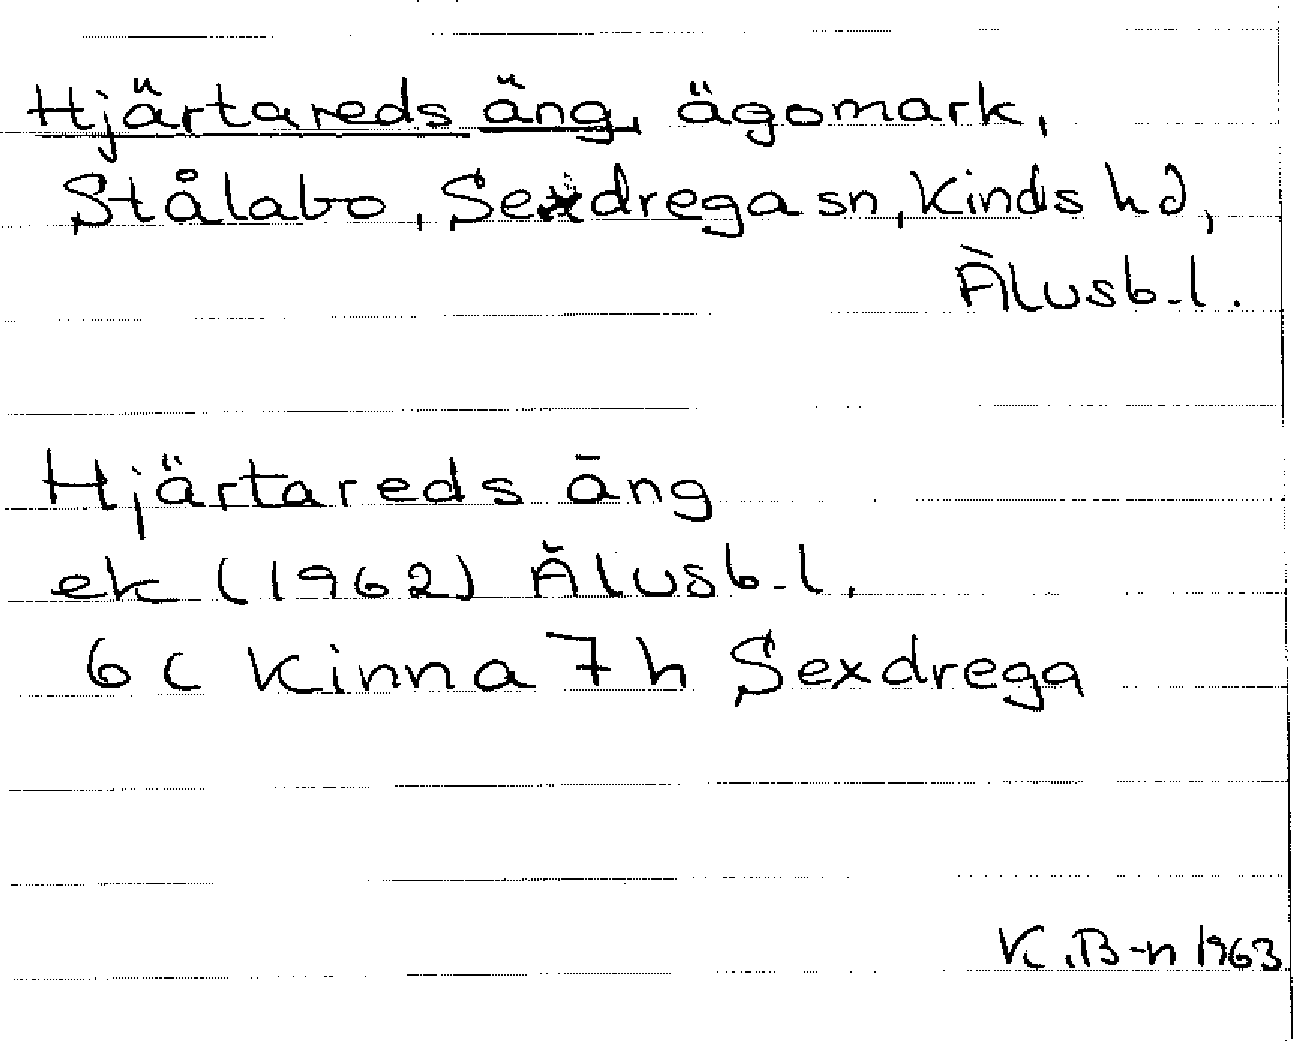 Hjärtareds äng, ägomark,
Stålabo, Sexdrega sn, Kinds hd,
Älvsb. l.
Hjärtareds äng
ek (1962) Älvsb. l.
6 C Kinna 7 h Sexdrega
K. B-n 1963